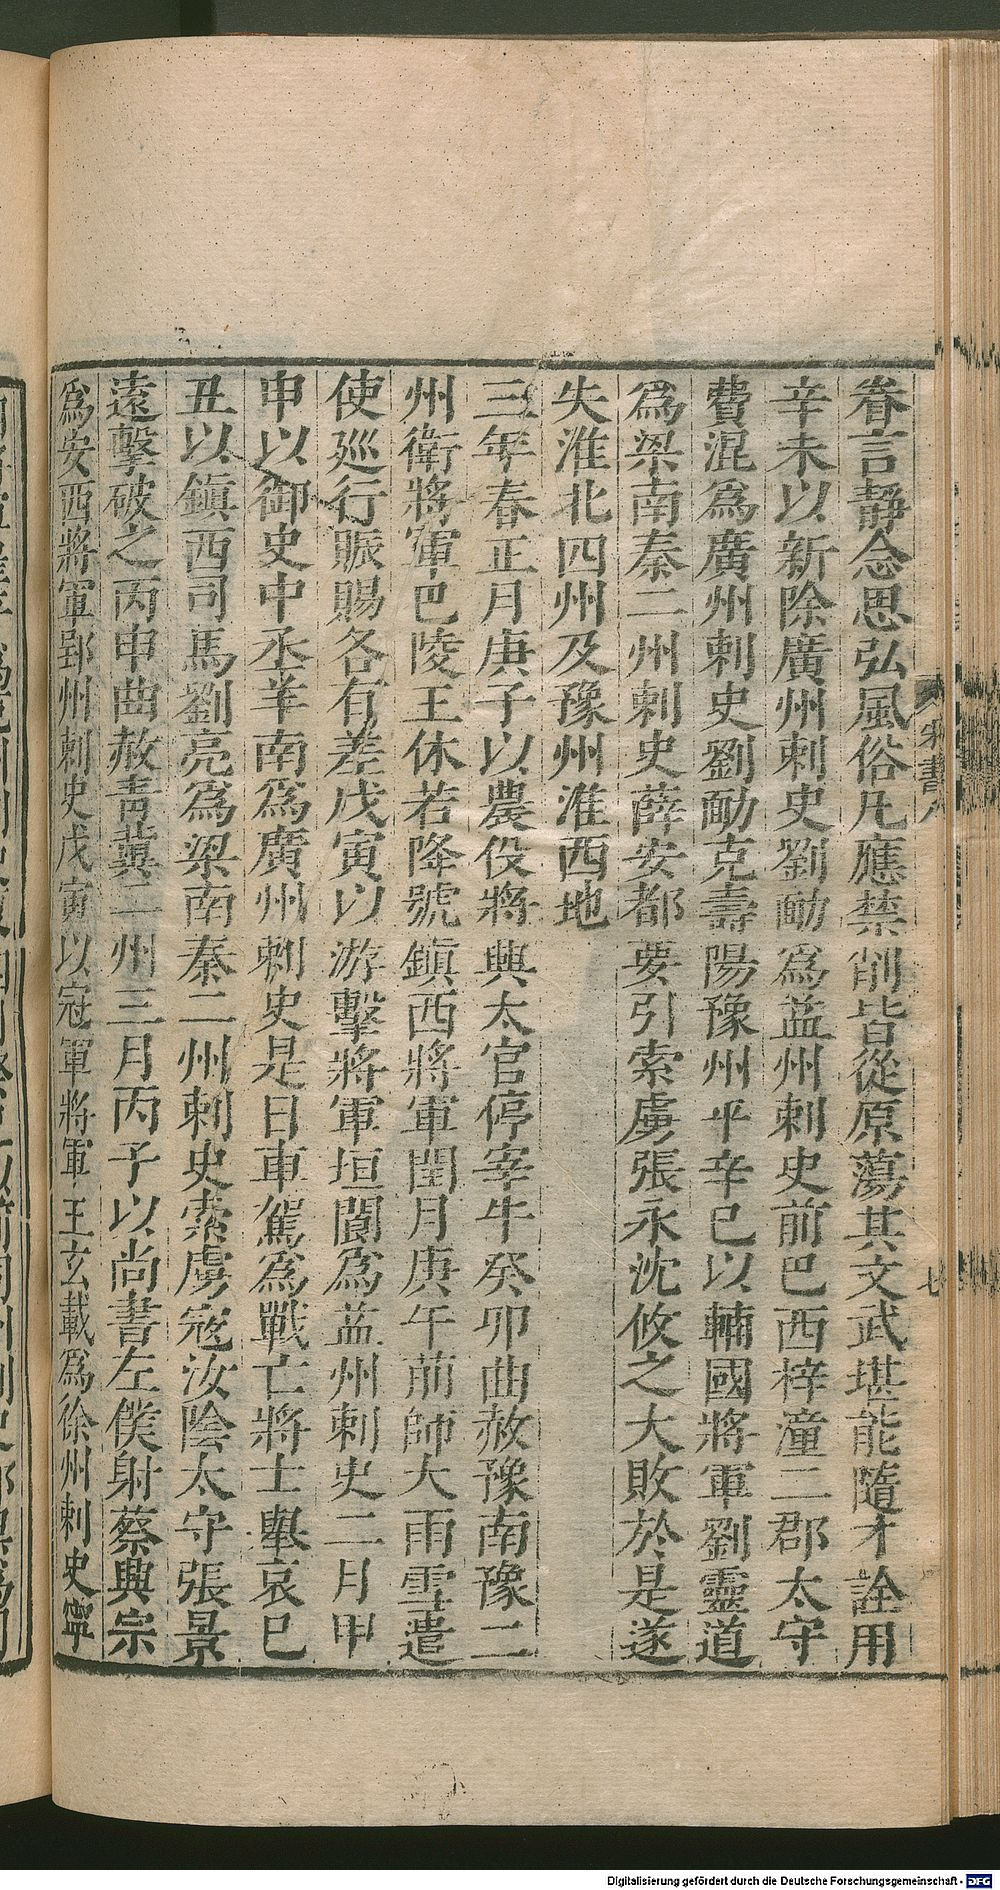 眷言靜念思弘風俗凡應禁削皆從原蕩其文武堪能隨才詮用
辛未以新除廣州刺史劉勔爲益州刺史前巴西梓潼二郡太守
費混爲廣州刺史劉勔克壽陽豫州平辛巳以輔國將軍劉靈道
爲梁南秦二州刺史薛安都要引索虜張永沈攸之大敗於是遂
失淮北四州及豫州淮西地
三年春正月庚子以農役將興太官停宰牛癸卯曲赦豫南豫二
州衛將軍巴陵王休若降號鎮西將軍閏月庚午前師大雨雪遣
使巡行賑賜各有差戊寅以游擊將軍垣閬爲益州刺史二月甲
申以御史中丞羊南爲廣州刺史是日車駕爲戰亡將士舉哀巳
丑以鎮西司馬劉亮爲梁南秦二州刺史索虜寇汝陰太守張景
遠擊破之丙申曲赦青冀二州三月丙子以尚書左僕射蔡興宗
爲安西將軍郢州刺史戊寅以冠軍將軍王玄載爲徐州刺史寧
宋書八
七
Digitalisierung gefördert durch die Deutsche Forschungsgemeinschaft - DFG